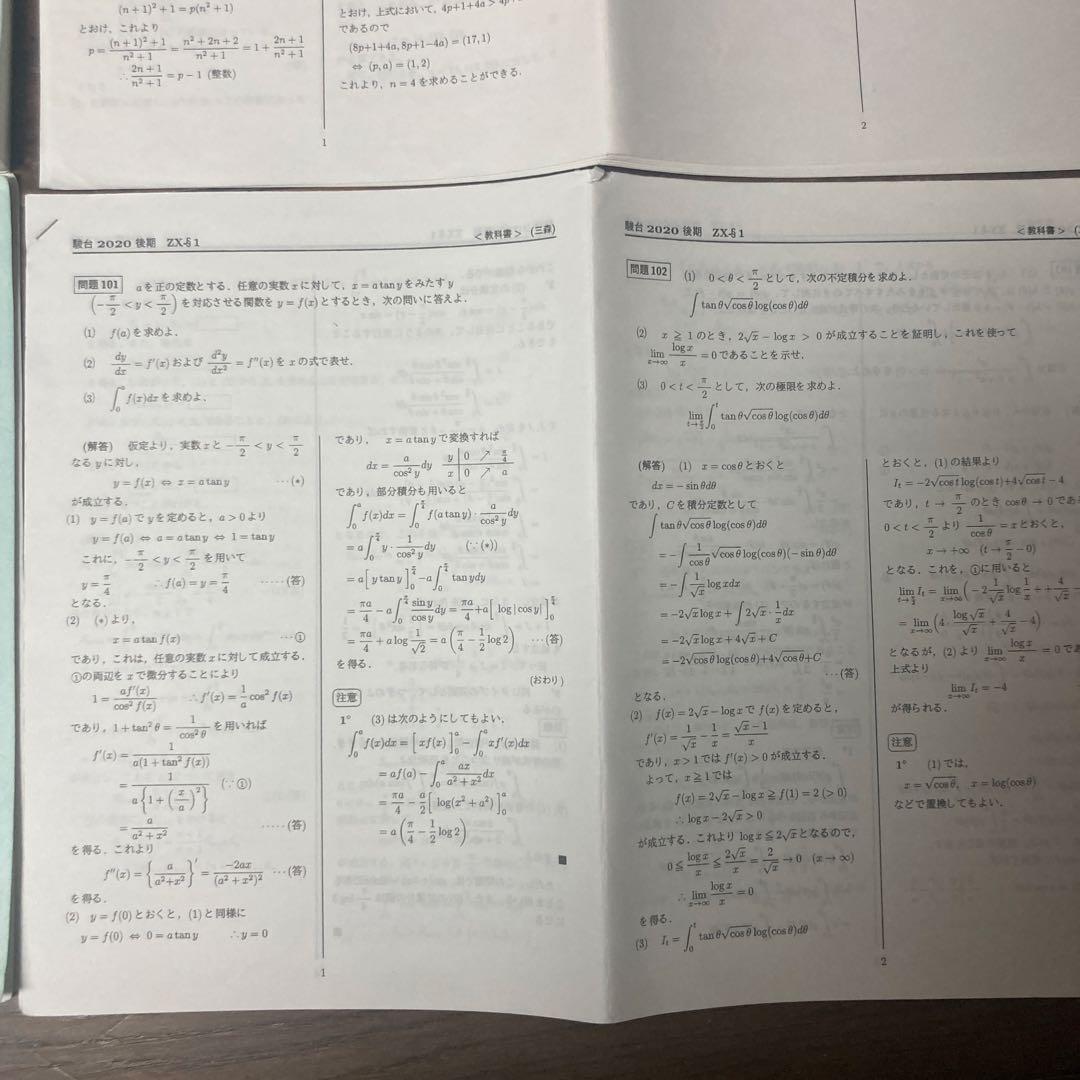 (n+1)²+1 = p(n²+1)
とおけ, これより
p = \frac{(n+1)²+1}{n²+1} = \frac{n²+2n+2}{n²+1} = 1+\frac{2n+1}{n²+1}
∴ \frac{2n+1}{n²+1} = p−1 (整数)
1
とおけ, 上式において, 4p+1+4a > 4p+
であるので
(8p+1+4a, 8p+1−4a) = (17, 1)
⇔ (p, a) = (1, 2)
これより, n = 4 を求めることができる.
2
駿台 2020 後期 ZX-§1 <教科書> (三森)
問題 101 a を正の定数とする. 任意の実数 x に対して, x = a tan y をみたす y
(−\frac{π}{2} < y < \frac{π}{2}) を対応させる関数を y = f(x) とするとき, 次の問いに答えよ.
(1) f(a) を求めよ.
(2) \frac{dy}{dx} = f′(x) および \frac{d²y}{dx²} = f″(x) を x の式で表せ.
(3) ∫_0^a f(x)dx を求めよ.
(解答) 仮定より, 実数 x と −\frac{π}{2} < y < \frac{π}{2}
なる y に対し,
y = f(x) ⇔ x = a tan y ···(*)
が成立する.
(1) y = f(a) で y を定めると, a > 0 より
y = f(a) ⇔ a = a tan y ⇔ 1 = tan y
これに, −\frac{π}{2} < y < \frac{π}{2} を用いて
y = \frac{π}{4} ∴ f(a) = y = \frac{π}{4} ·····(答)
となる.
(2) (*) より,
x = a tan f(x) ···①
であり, これは, 任意の実数 x に対して成立する.
①の両辺を x で微分することにより
1 = \frac{af′(x)}{cos² f(x)} ∴ f′(x) = \frac{1}{a} cos² f(x)
であり, 1 + tan² θ = \frac{1}{cos² θ} を用いれば
f′(x) = \frac{1}{a(1+tan² f(x))}
= \frac{1}{a\{1+(\frac{x}{a})²\}} (∵ ①)
= \frac{a}{a²+x²} ·····(答)
を得る. これより
f″(x) = \{\frac{a}{a²+x²}\}′ = \frac{−2ax}{(a²+x²)²} ···(答)
を得る.
(2) y = f(0) とおくと, (1) と同様に
y = f(0) ⇔ 0 = a tan y ∴ y = 0
であり, x = a tan y で変換すれば
dx = \frac{a}{cos² y} dy
y 0 ↗ \frac{π}{4}
x 0 ↗ a
であり, 部分積分も用いると
∫_0^a f(x)dx = ∫_0^{\frac{π}{4}} f(a tan y)·\frac{a}{cos² y} dy
= a∫_0^{\frac{π}{4}} y·\frac{1}{cos² y} dy (∵ (*))
= a[y tan y]_0^{\frac{π}{4}} − a∫_0^{\frac{π}{4}} tan y dy
= \frac{πa}{4} − a∫_0^{\frac{π}{4}} \frac{sin y}{cos y} dy = \frac{πa}{4} + a[log|cos y|]_0^{\frac{π}{4}}
= \frac{πa}{4} + a log \frac{1}{√2} = a(\frac{π}{4} − \frac{1}{2} log 2) ···(答)
を得る.
(おわり)
注意
1° (3) は次のようにしてもよい.
∫_0^a f(x)dx = [xf(x)]_0^a − ∫_0^a xf′(x)dx
= af(a) − ∫_0^a \frac{ax}{a²+x²} dx
= \frac{πa}{4} − \frac{a}{2}[log(x²+a²)]_0^a
= a(\frac{π}{4} − \frac{1}{2} log 2)
■
1
駿台 2020 後期 ZX-§1 <教科書> (
問題 102 (1) 0 < θ < \frac{π}{2} として, 次の不定積分を求めよ.
∫ tan θ√{cos θ} log(cos θ)dθ
(2) x ≧ 1 のとき, 2√x − log x > 0 が成立することを証明し, これを使って
lim_{x→∞} \frac{log x}{x} = 0 であることを示せ.
(3) 0 < t < \frac{π}{2} として, 次の極限を求めよ.
lim_{t→\frac{π}{2}} ∫_0^t tan θ√{cos θ} log(cos θ)dθ
(解答) (1) x = cos θ とおくと
dx = −sin θdθ
であり, C を積分定数として
∫ tan θ√{cos θ} log(cos θ)dθ
= −∫ \frac{1}{cos θ}√{cos θ} log(cos θ)(−sin θ)dθ
= −∫ \frac{1}{√x} log xdx
= −2√x log x + ∫ 2√x·\frac{1}{x} dx
= −2√x log x + 4√x + C
= −2√{cos θ} log(cos θ) + 4√{cos θ} + C
···(答)
となる.
(2) f(x) = 2√x − log x で f(x) を定めると,
f′(x) = \frac{1}{√x} − \frac{1}{x} = \frac{√x−1}{x}
であり, x > 1 では f′(x) > 0 が成立する.
よって, x ≧ 1 では
f(x) = 2√x − log x ≧ f(1) = 2 (> 0)
∴ log x − 2√x > 0
が成立する. これより log x ≦ 2√x となるので,
0 ≦ \frac{log x}{x} ≦ \frac{2√x}{x} = \frac{2}{√x} → 0 (x → ∞)
∴ lim_{x→∞} \frac{log x}{x} = 0
を得る.
(3) I_t = ∫_0^t tan θ√{cos θ} log(cos θ)dθ
とおくと, (1) の結果より
I_t = −2√{cos t} log(cos t)+4√{cos t} − 4
であり, t → \frac{π}{2} のとき cos θ → 0 であ
0 < t < \frac{π}{2} より \frac{1}{cos θ} = x とおくと,
x → +∞ (t → \frac{π}{2} − 0)
となる. これを, ①に用いると
lim_{t→\frac{π}{2}} I_t = lim_{x→∞} (−2\frac{1}{√x} log \frac{1}{x} + + \frac{4}{√x} −
= lim_{x→∞} (4·\frac{log √x}{√x} + \frac{4}{√x} − 4)
となるが, (2) より lim_{x→∞} \frac{log x}{x} = 0 であ
上式より
lim_{t→\frac{π}{2}} I_t = −4
が得られる.
注意
1° (1) では,
x = √{cos θ}, x = log(cos θ)
などで置換してもよい.
2